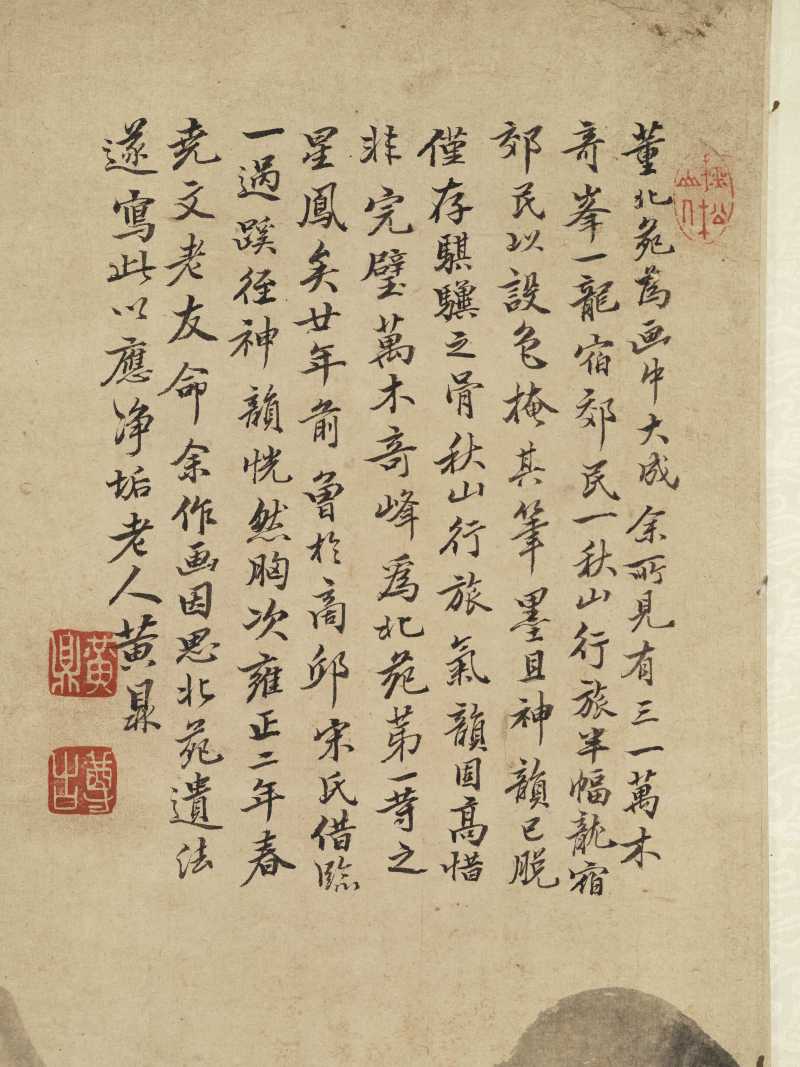 董北苑為画中大成余所見有三一萬木
奇峯一龍宿郊民一秋山行旅半幅龍宿
郊民以設色掩其筆墨且神韻已脫
僅存騏驥之骨秋山行旅氣韻固高惜
非完璧萬木奇峰為北苑苐一等之
星鳳矣廿年前曾於商邱宋氏借臨
一過蹊徑神韻恍然胸次雍正二年春
堯文老友命余作画因思北苑遺法
遂寫此以應淨垢老人黄鼎
黄鼎
尊古